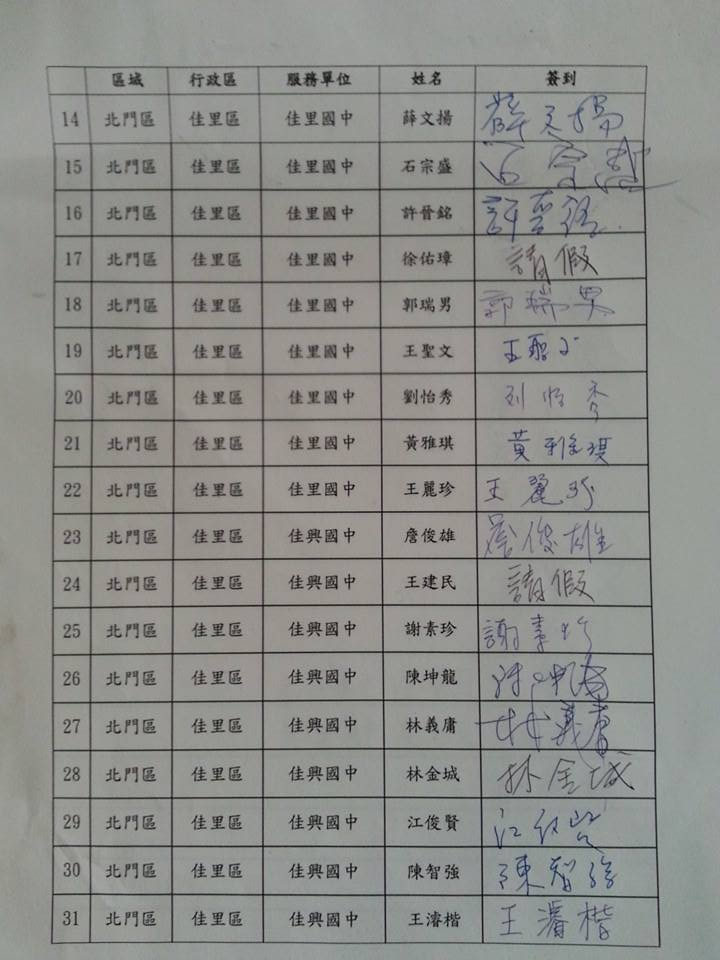 區域 行政區 服務單位 姓名 簽到
14 北門區 佳里區 佳里國中 薛文揚 薛文揚
15 北門區 佳里區 佳里國中 石宗盛 石宗盛
16 北門區 佳里區 佳里國中 許晉銘 許晉銘
17 北門區 佳里區 佳里國中 徐佑璋 請假
18 北門區 佳里區 佳里國中 郭瑞男 郭瑞男
19 北門區 佳里區 佳里國中 王聖文 王聖文
20 北門區 佳里區 佳里國中 劉怡秀 刘怡秀
21 北門區 佳里區 佳里國中 黃雅琪 黃雅琪
22 北門區 佳里區 佳里國中 王麗珍 王麗珍
23 北門區 佳里區 佳興國中 詹俊雄 詹俊雄
24 北門區 佳里區 佳興國中 王建民 請假
25 北門區 佳里區 佳興國中 謝素珍 謝素珍
26 北門區 佳里區 佳興國中 陳坤龍 陳坤龍
27 北門區 佳里區 佳興國中 林義庸 林義庸
28 北門區 佳里區 佳興國中 林金城 林金城
29 北門區 佳里區 佳興國中 江俊賢 江俊賢
30 北門區 佳里區 佳興國中 陳智強 陳智強
31 北門區 佳里區 佳興國中 王濬楷 王濬楷